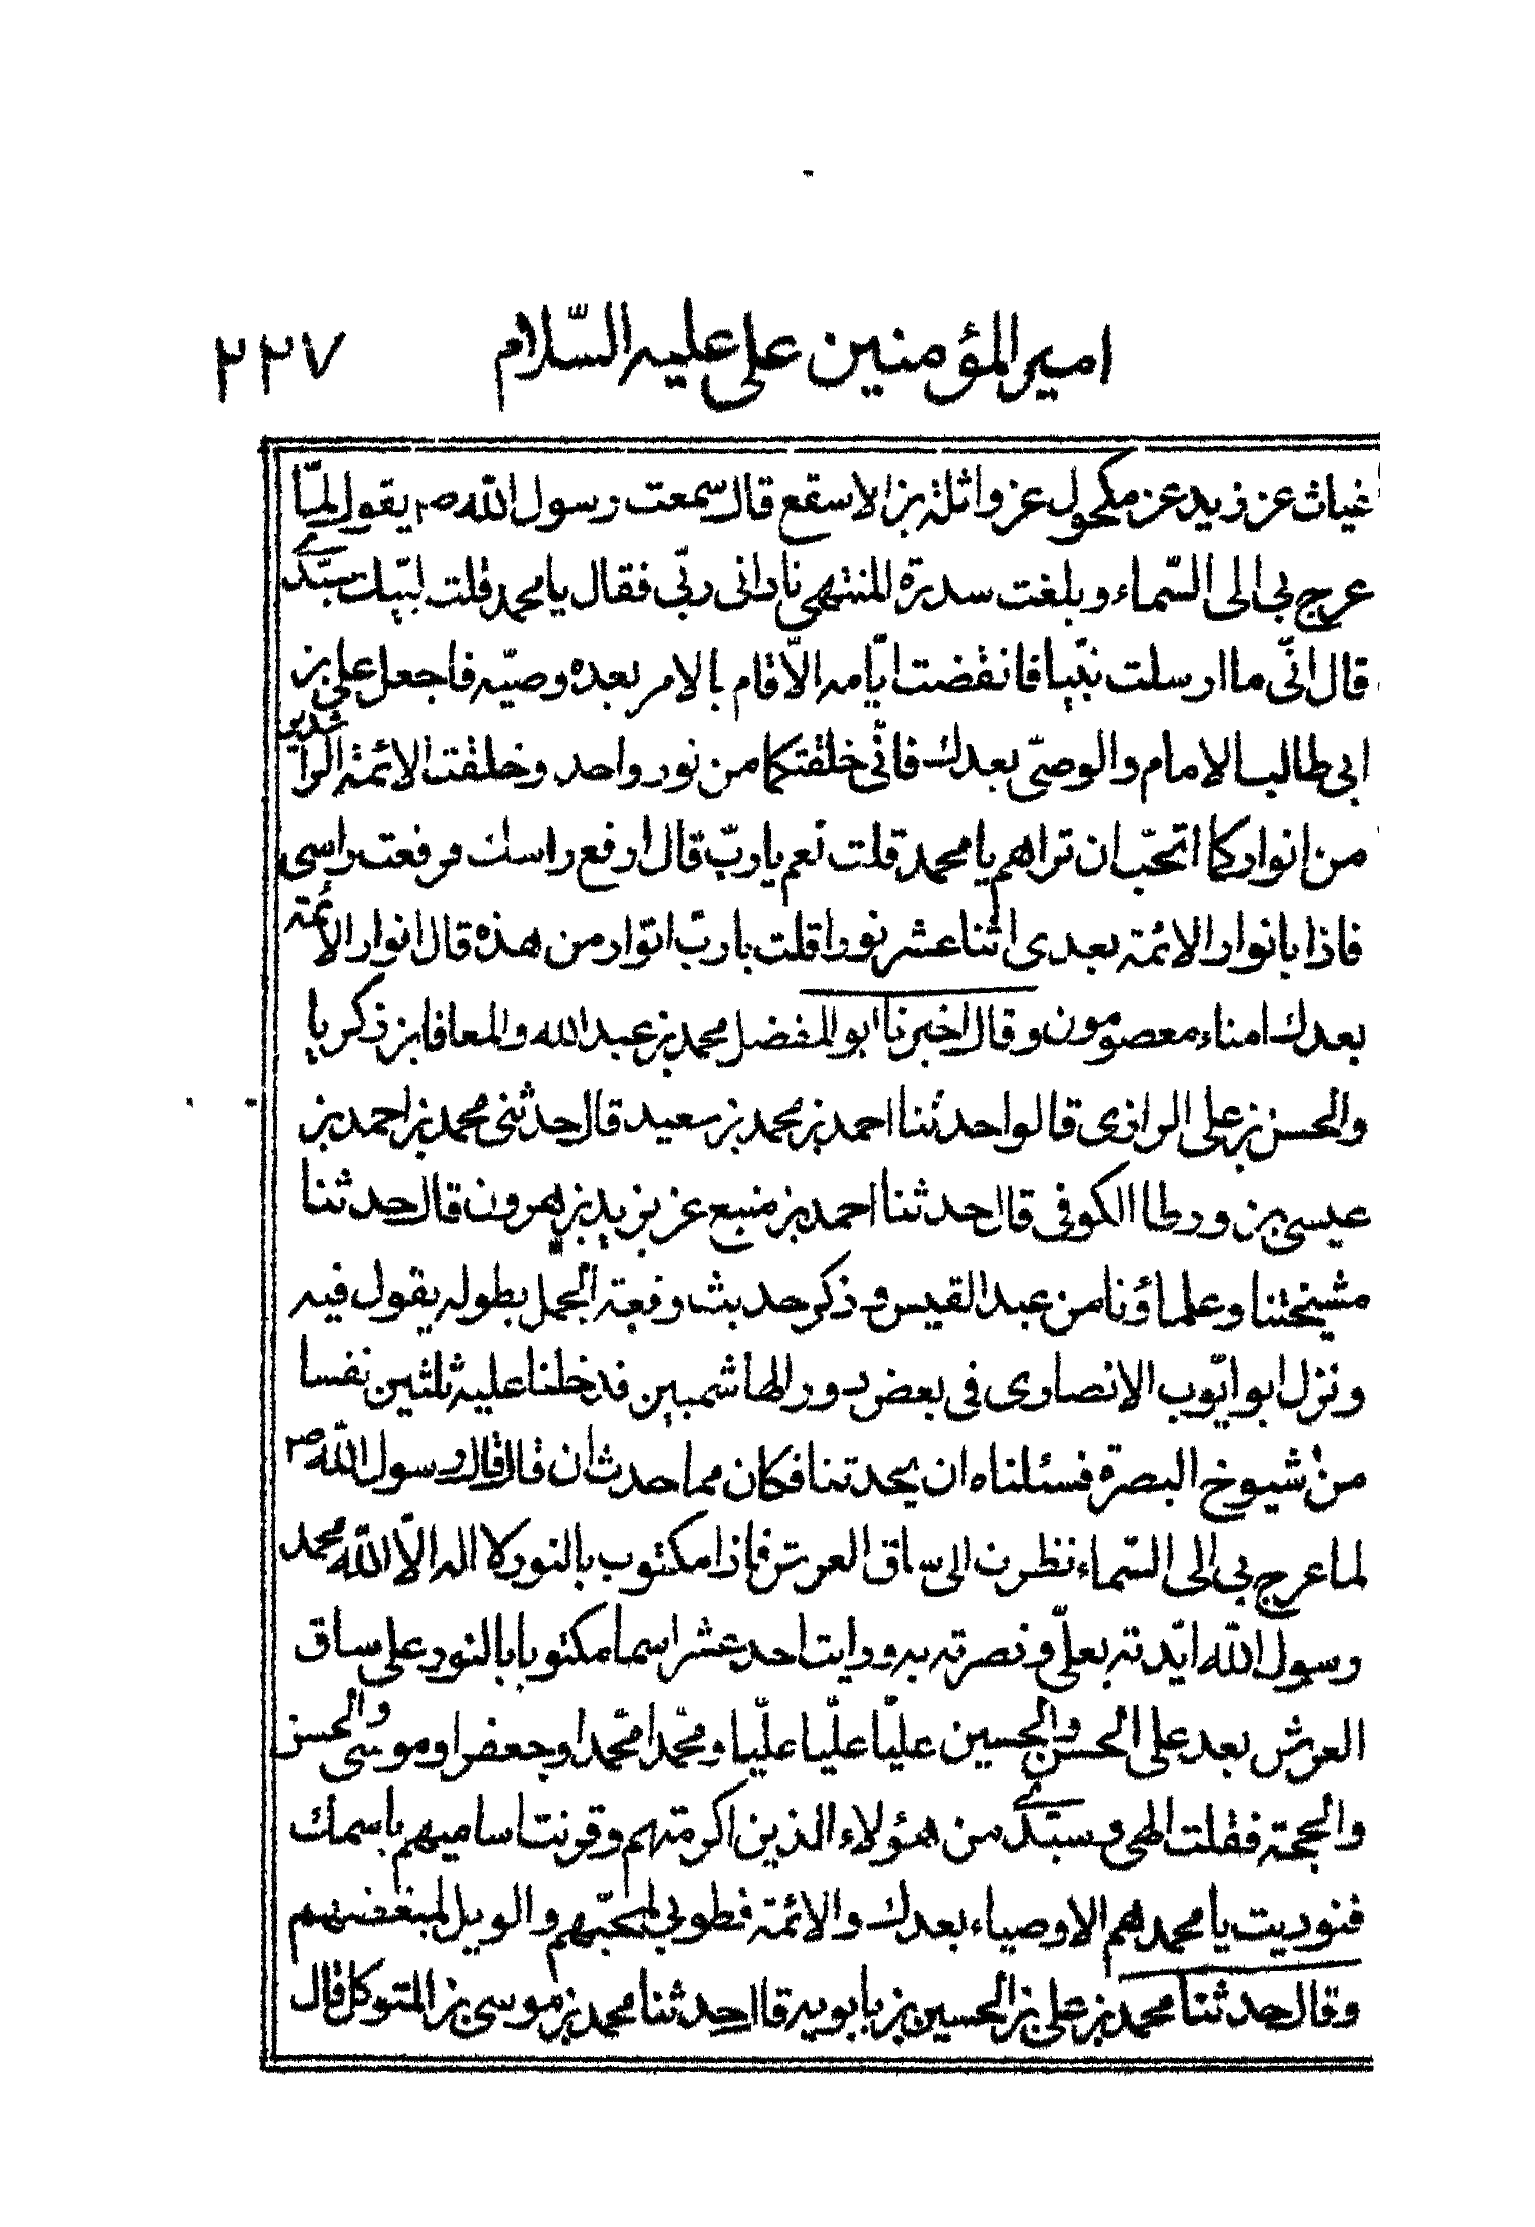 امير المؤمنين على عليه السّلام ٢٢٧
غياث عن زيد عن مكحول عن واثلة بن الاسقع قال سمعت رسول اللّه ص يقول لمّا
عرج بى الى السّماء وبلغت سدرة المنتهى نادانى ربّى فقال يا محمد قلت لبّيك سيّدى
قال انّى ما ارسلت نبيّا فانقضت ايّامه الّا قام بالامر بعده وصيّه فاجعل على بن
ابى طالب الامام والوصىّ بعدك فانّى خلقتكما من نور واحد وخلقت الائمة الراشدين
من انواركما اتحبّ ان تراهم يا محمد قلت نعم يا ربّ قال ارفع راسك فرفعت راسى
فاذا بانوار الائمة بعدى اثنا عشر نورا قلت يا ربّ انوار من هذه قال انوار الائمة
بعدك امناء معصومون وقال اخبرنا ابو المفضل محمد بن عبد الله والمعافا بن زكريا
والحسن بن على الرازى قالوا حدثنا احمد بن محمد بن سعيد قال حدثنى محمد بن احمد بن
عيسى بن ورطا الكوفى قال حدثنا احمد بن منيع عن يزيد بن هرون قال حدثنا
مشيختنا وعلماؤنا من عبد القيس وذكر حديث وقعة الجمل بطوله يقول فيه
ونزل ابو ايّوب الانصارى فى بعض دور الهاشميين فدخلنا عليه ثلثين نفسا
من شيوخ البصرة فسئلناه ان يحدثنا فكان مما حدث ان قال قال رسول اللّه ص
لما عرج بى الى السّماء نظرت الى ساق العرش فاذا مكتوب بالنور لا اله الّا اللّه محمد
رسول اللّه ايّدته بعلّى ونصرته به ورايت احد عشر اسما مكتوبا بالنور على ساق
العرش بعد على الحسن والحسين عليّا عليّا عليّا ومحّمدا محّمدا وجعفرا وموسى والحسن
والحجة فقلت الهى وسيّدى من هؤلاء الذين اكرمتهم وقرنت اساميهم باسمك
فنوديت يا محمد هم الاوصياء بعدك والائمة فطوبى لمحبّيهم والويل لمبغضيهم
وقال حدثنا محمد بن على بن الحسين بن بابويه قال حدثنا محمد بن موسى بن المتوكل قال